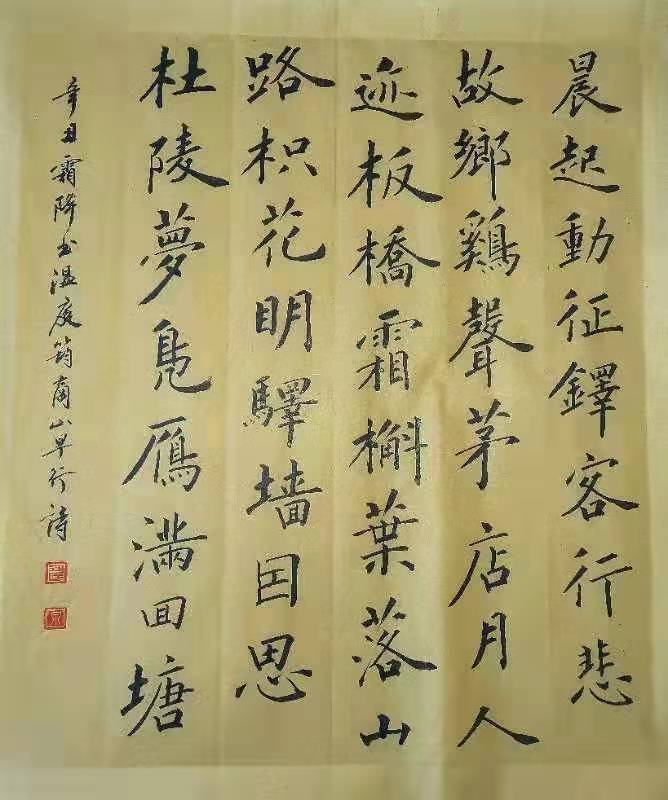 晨起動征鐸客行悲
故鄉鷄聲茅店月人
迹板橋霜槲葉落山
路枳花明驛墙因思
杜陵夢凫雁满回塘
辛丑霜降书温庭筠商山早行詩